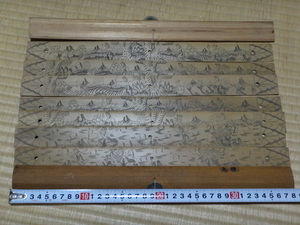 3 4 5 6 7 8 9 10 1 2 3 4 5 6 7 8 9 20 1 2 3 4 5 6 7 8 9 30 1 2 3 4 5 6 7 8